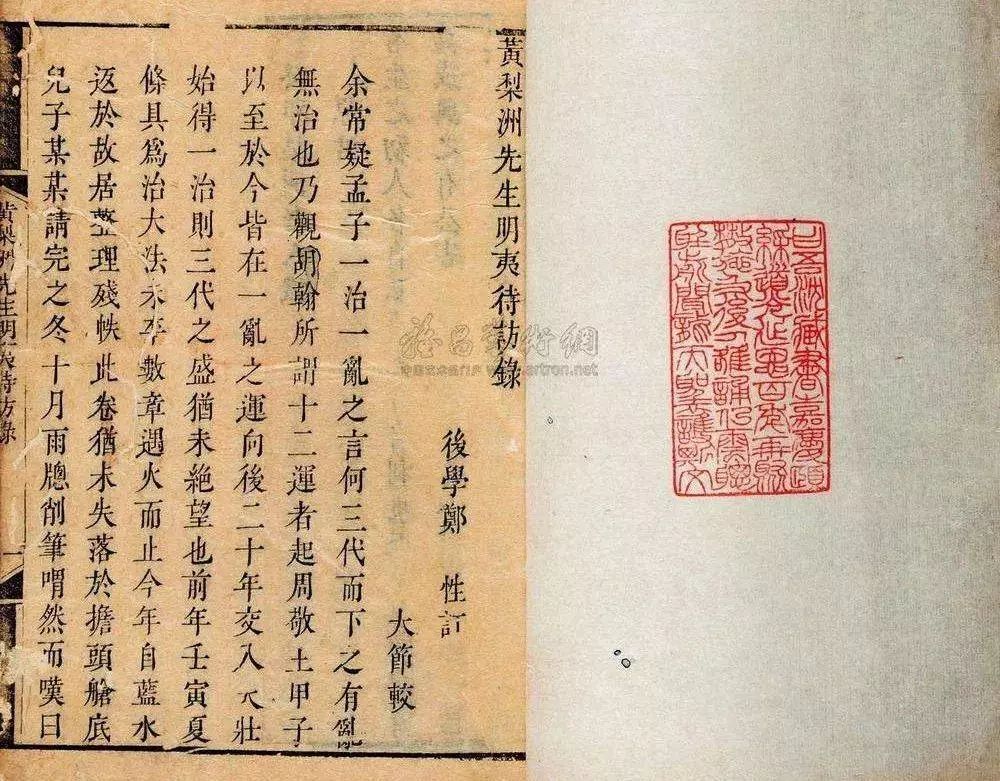 黃梨洲先生明夷待訪錄
後學鄭 性訂
大節較
余常疑孟子一治一亂之言何三代而下之有亂
無治也乃觀胡翰所謂十二運者起周敬王甲子
以至於今皆在一亂之運向後二十年交入大壯
始得一治則三代之盛猶未絕望也前年壬寅夏
條具爲治大法未卒數章遇火而止今年自藍水
返於故居整理殘帙此卷猶未失落於擔頭艙底
兒子某某請完之冬十月雨牕削筆喟然而嘆曰
黃梨洲先生明夷待訪錄 一
artron.net